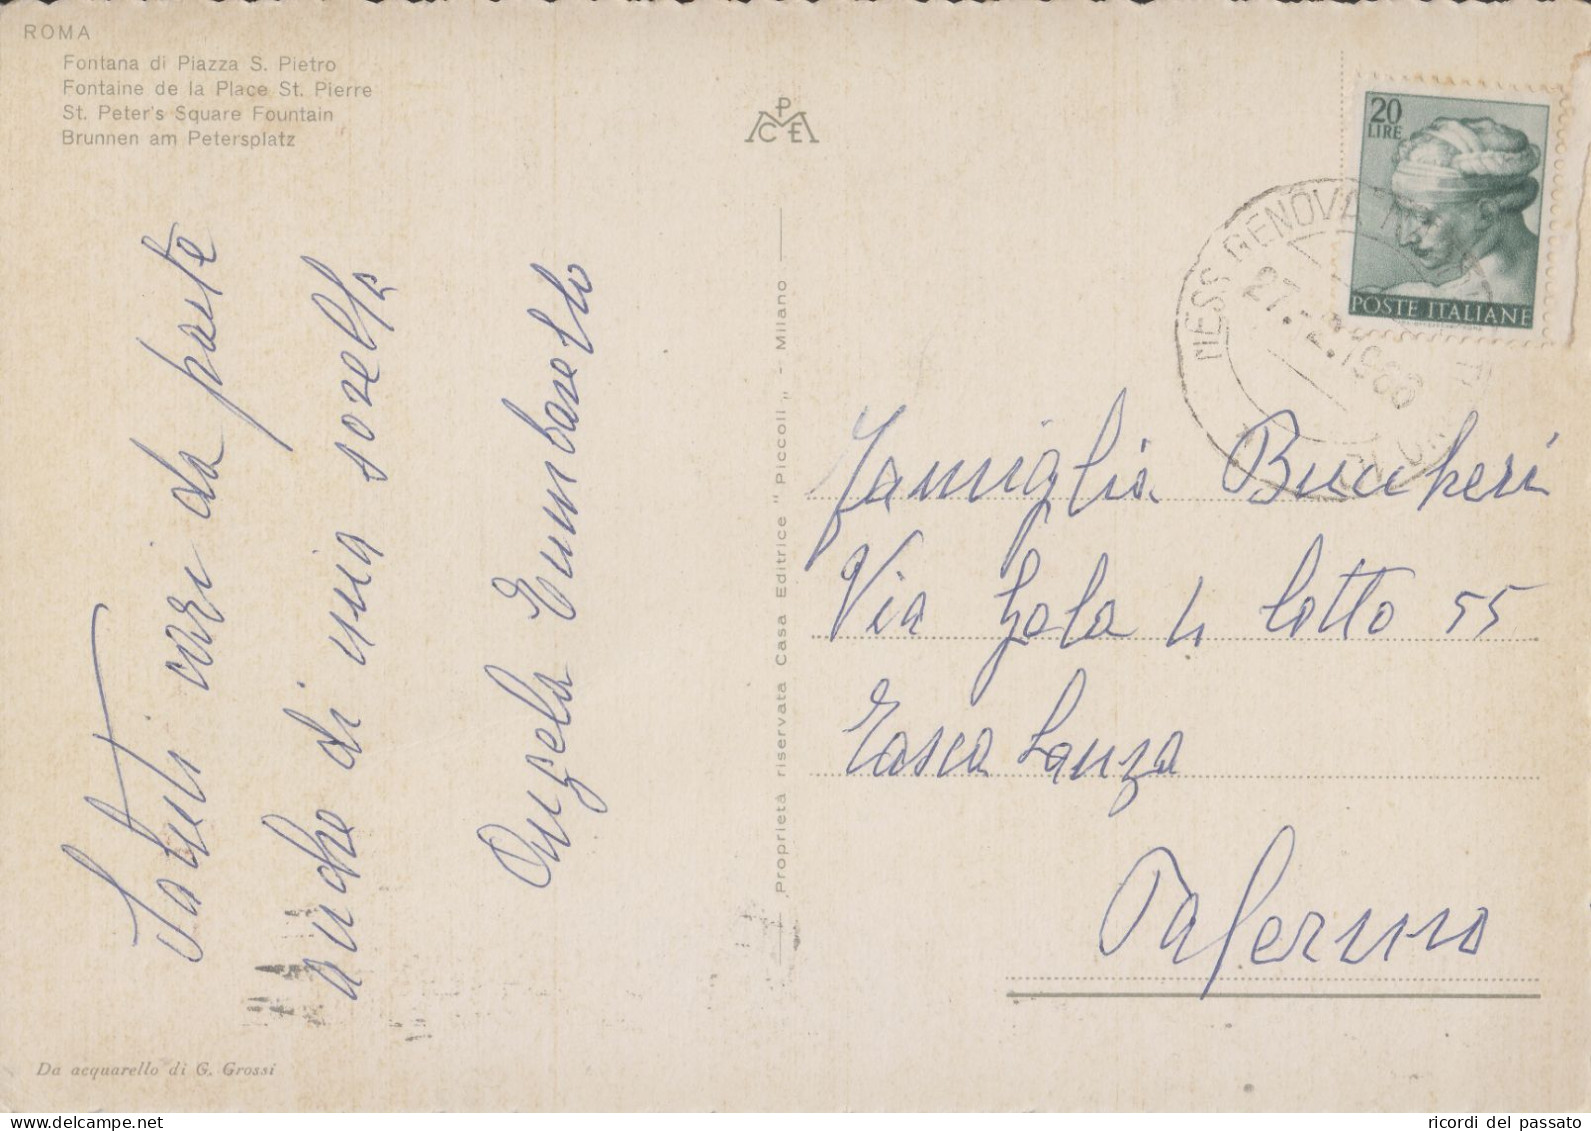 ROMA
Fontana di Piazza S. Pietro
Fontaine de la Place St. Pierre
St. Peter's Square Fountain
Brunnen am Petersplatz
P
C E
20
LIRE
POSTE ITALIANE
MESS. GENOVA
27.-2.19
Saluti cari da parte
anche di mia sorella
Angela
Proprietà riservata Casa Editrice "Piccoli" - Milano
Famiglia Buccheri
Via Gela 4 lotto 55
Tasca Lanza
Palermo
Da acquarello di G. Grossi
ricordi del passato